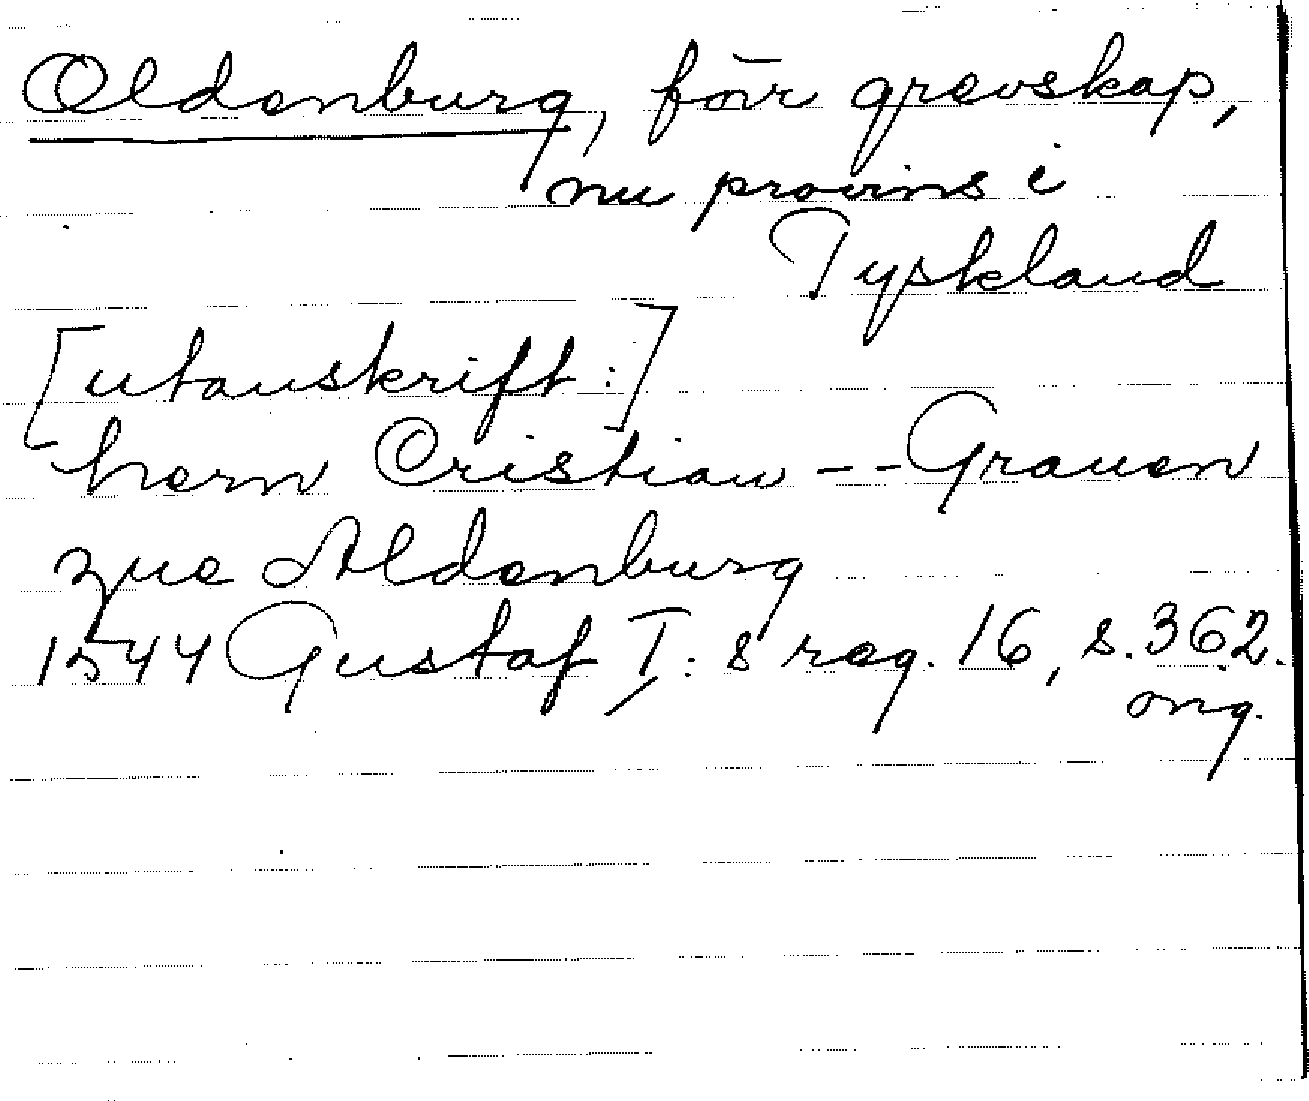 Oldenburg, förr grevskap,
nu provins i
Tyskland
[utanskrift:]
hern Cristian -- Grauen
zue Aldenburg
1544 Gustaf I: s reg. 16, s. 362.
orig.